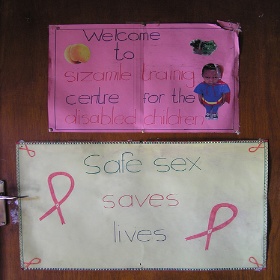 Welcome
to
sizamile trainig
centre for the
disabled children
Safe sex
saves
lives